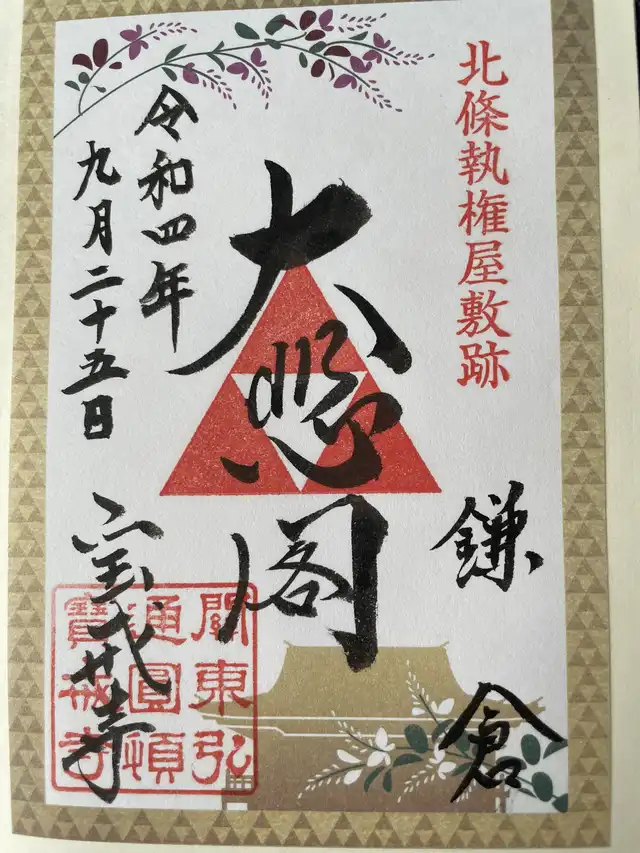 北條執権屋敷跡
鎌倉
大悲閣
令和四年
九月二十五日
宝戒寺
關東弘
通圓頓
寶戒寺